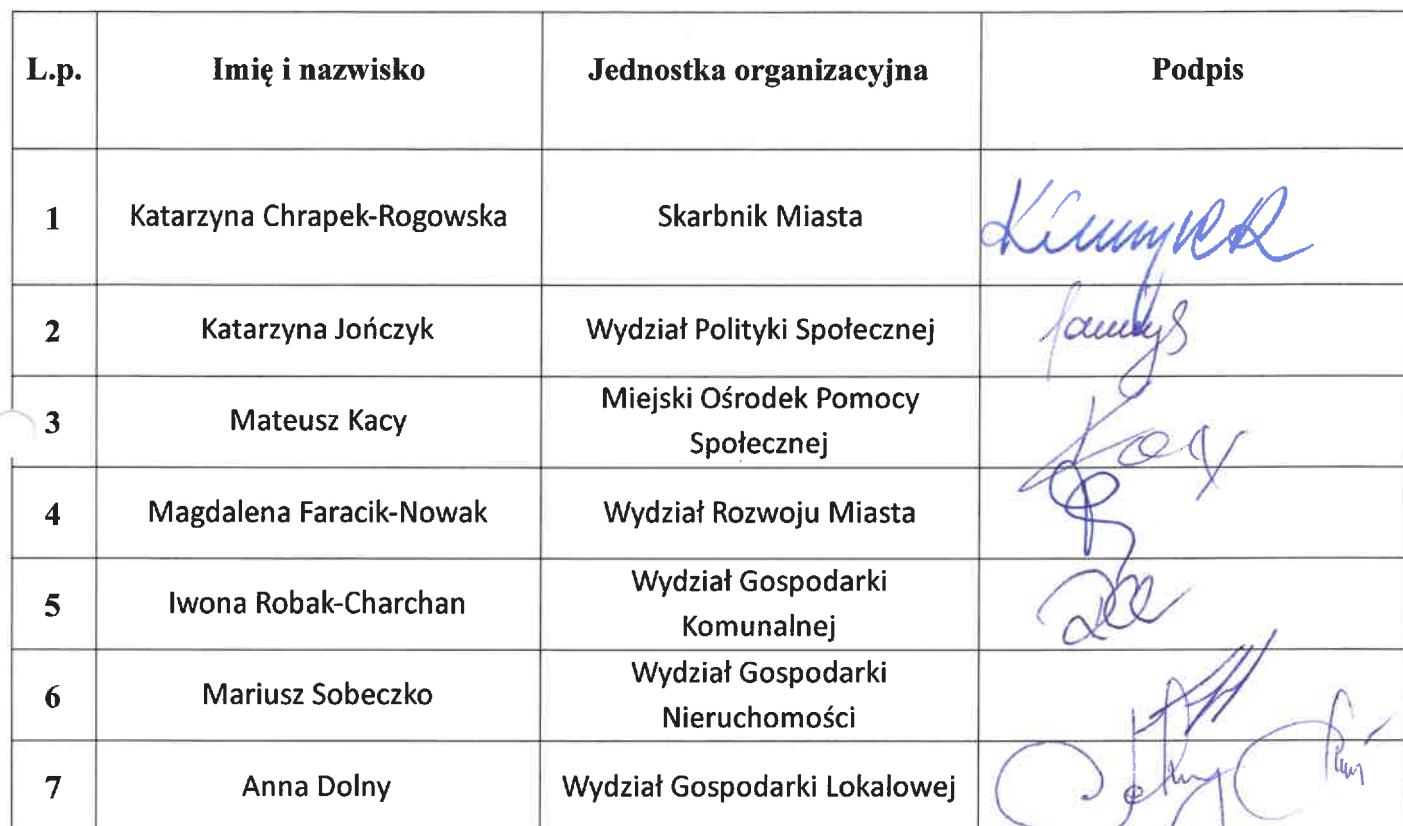 L.p. Imię i nazwisko Jednostka organizacyjna Podpis
1 Katarzyna Chrapek-Rogowska Skarbnik Miasta
2 Katarzyna Jończyk Wydział Polityki Społecznej
3 Mateusz Kacy Miejski Ośrodek Pomocy
Społecznej
4 Magdalena Faracik-Nowak Wydział Rozwoju Miasta
5 Iwona Robak-Charchan Wydział Gospodarki
Komunalnej
6 Mariusz Sobeczko Wydział Gospodarki
Nieruchomości
7 Anna Dolny Wydział Gospodarki Lokalowej